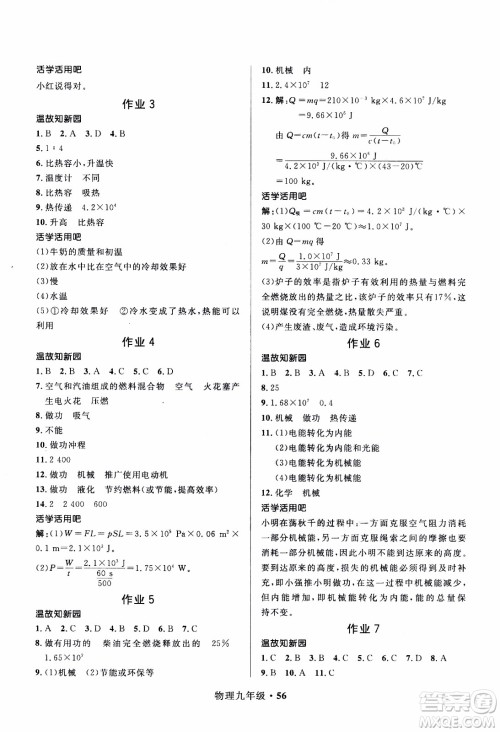 活学活用吧
小红说得对。
作业 3
温故知新园
1. B 2. A 3. D 4. C
5. 1∶4
6. 比热容小 吸热
7. 温度计 不同
8. 比热容
9. 热传递 4.2×10⁵
10. 升高 比热容
活学活用吧
(1)牛奶的质量和初温
(2)放在水中比在空气中的冷却效果好
(3)慢
(4)水温
(5)①冷却效果好 ②水变成了热水,可再
利用
作业 4
温故知新园
1. D 2. B 3. D 4. C 5. B 6. C
7. 空气和汽油组成的燃料混合物 空气 火花塞产
生电火花 压燃
8. 做功 吸气
9. 不能
10. 做功冲程
11. 2 400
12. 做功 机械 推广使用电动机
13. 做功 液化 节约燃料(或减少排放等)
14. 2 2 400 600
活学活用吧
解:(1)W=FL=pSL=3.5×10⁵ Pa×0.06 m²×
0.1 m=2.1×10³ J
(2)P=W/t=2.1×10³ J/(60 s/500)=1.75×10⁴ W
作业 5
温故知新园
1. A 2. C 3. D 4. B 5. C 6. D 7. C
8. 做有用的功 柴油完全燃烧释放出的 25%
1.65×10⁷
9. (1)机械 (2)节能或环保等
10. 机械 内
11. 2.4×10⁷ 12
12. 解:Q=mq=210×10⁻³ kg×4.6×10⁷ J/kg
=9.66×10⁶ J
由 Q=cm(t-t₀)得 m=Q/c(t-t₀)
=9.66×10⁶ J/4.2×10³ J/(kg·℃)×(43-20)℃
=100 kg。
活学活用吧
解:(1)Q吸=cm(t-t₀)=4.2×10³ J/(kg·℃)×
3 kg×(100 ℃-20 ℃)≈1.0×10⁶ J
m=Q/q=1.0×10⁷ J/3×10⁷ J/kg≈0.33 kg。
(2)炉子的效率是指炉子有效利用的热量与燃料完全
燃烧所放出的热量之比,该炉子的效率为17%,这
说明煤没有完全燃烧,热量散失严重。
(3)产生废渣、废气,造成环境污染。
作业 6
温故知新园
1. B 2. C 3. A 4. A 5. D 6. C 7. C
8. 25
9. 1.68×10⁷
10. 机械 做功 热传递
11. (1)电能转化为内能
(2)电能转化为内能和光能
(3)电能转化为机械能
(4)电能转化为机械能
12. 化学 机械
活学活用吧
小明在荡秋千的过程中:一方面克服空气阻力消耗
一部分机械能;另一方面克服绳与梁之间的摩擦也要
消耗一部分机械能,所以小明不能达到原来的高度。
要想达到原来的高度,其他同学要对小明做功,增加
小明的机械能。虽然机械能减少,但是减少的机械能
转化为了内能,能的总量保持不变,故不违背能量守
恒定律。
作业 7
温故知新园
1. B 2. C 3. D 4. B 5. A 6. C
物理九年级·56